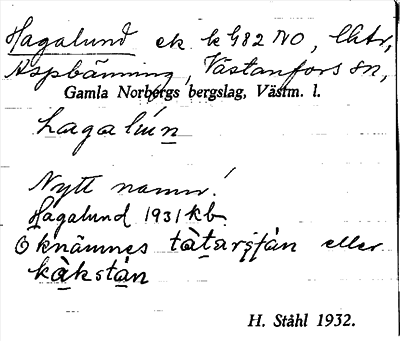 Hagalund ek k G82 NO, lktr,
Aspbänning, Västanfors sn,
Gamla Norbergs bergslag, Västm. l.
hagalún
Nytt namn!
Hagalund 1931 kb.
Öknämnes tàtarsfán eller
kàkstan
H. Ståhl 1932.